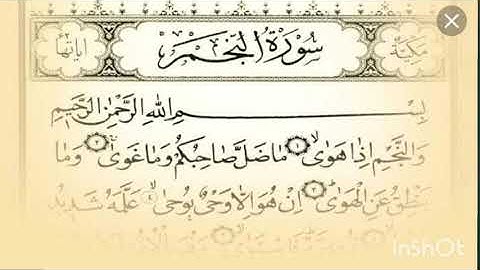 مكية سورة النجم آياتها
بِسْمِ اللهِ الرَّحْمٰنِ الرَّحِيْمِ
وَالنَّجْمِ اِذَا هَوٰى ۙ﴿۱﴾ مَا ضَلَّ صَاحِبُكُمْ وَمَا غَوٰى ۚ﴿۲﴾ وَمَا
يَنْطِقُ عَنِ الْهَوٰى ؕ﴿۳﴾ اِنْ هُوَ اِلَّا وَحْىٌ يُوْحٰى ۙ﴿۴﴾ عَلَّمَهٗ شَدِيْدُ
InShOt